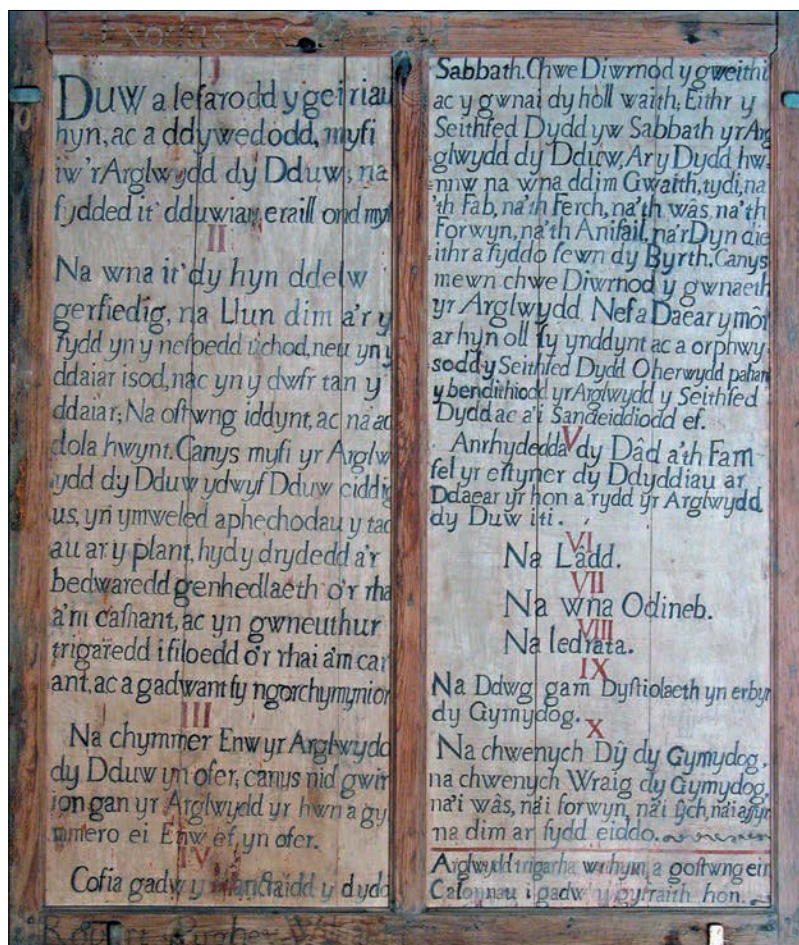 Exodus XX
I
Duw a lefarodd y geiriau
hyn, ac a ddywedodd, myfi
iw'r Arglwydd dy Dduw, na
fydded it' dduwiau eraill ond myfi
II
Na wna it' dy hyn ddelw
gerfiedig, na Llun dim a'r y
fydd yn y nefoedd uchod, neu yn y
ddaiar isod, nac yn y dwfr tan y
ddaiar; Na ostwng iddynt, ac na ac
dola hwynt. Canys myfi yr Arglw
ydd dy Dduw ydwyf Dduw eiddig
us, yn ymweled a phechodau y tad
au ar y plant, hyd y drydedd a'r
bedwaredd genhedlaeth o'r rha
a'm casant, ac yn gwneuthur
trigaredd i filoedd o'r rhai a'm car
ant, ac a gadwant fy ngorchymynion
III
Na chymmer Enw yr Arglwydd
dy Dduw yn ofer; canys nid gwir
ion gan yr Arglwydd yr hwn a gy
mmero ei Enw ef, yn ofer.
IV
Cofia gadw yn sancteiddd y dydd
Sabbath. Chwe Diwrnod y gweithi
ac y gwnai dy holl waith; Eithr y
Seithfed Dydd yw Sabbath yr Ar
glwydd dy Dduw, Ar y Dydd hw=
=nnw na wna ddim Gwaith, tydi, na
'th Fab, na'th Ferch, na'th wâs, na'th
Forwyn, na'th Anifail, na'r Dyn die
ithr a fyddo fewn dy Byrth. Canys
mewn chwe Diwrnod y gwnaeth
yr Arglwydd Nef a Daear y môr
ar hyn oll sy ynddynt ac a orphwy
sodd y Seithfed Dydd Oherwydd paham
y bendithiodd yr Arglwydd y Seithfed
Dydd ac a'i Sandeiddiodd ef.
V
Anrhydedda dy Dâd a'th Fam
fel yr estyner dy Ddyddiau ar
Ddaear yr hon a rydd yr Arglwydd
dy Duw iti.
VI
Na Lâdd.
VII
Na wna Odineb.
VIII
Na ledrata.
IX
Na Ddwg gam Dystiolaeth yn erbyn
dy Gymydog.
X
Na chwenych Dŷ dy Gymydog,
na chwenych Wraig dy Gymydog,
na'i wâs, na'i forwyn, na'i ŷch, na'i assyn
na dim ar sydd eiddo.
Arglwydd trigarha wrhym, a gostwng ein
Calonnau i gadw y gyfraith hon.
Robert Pughe